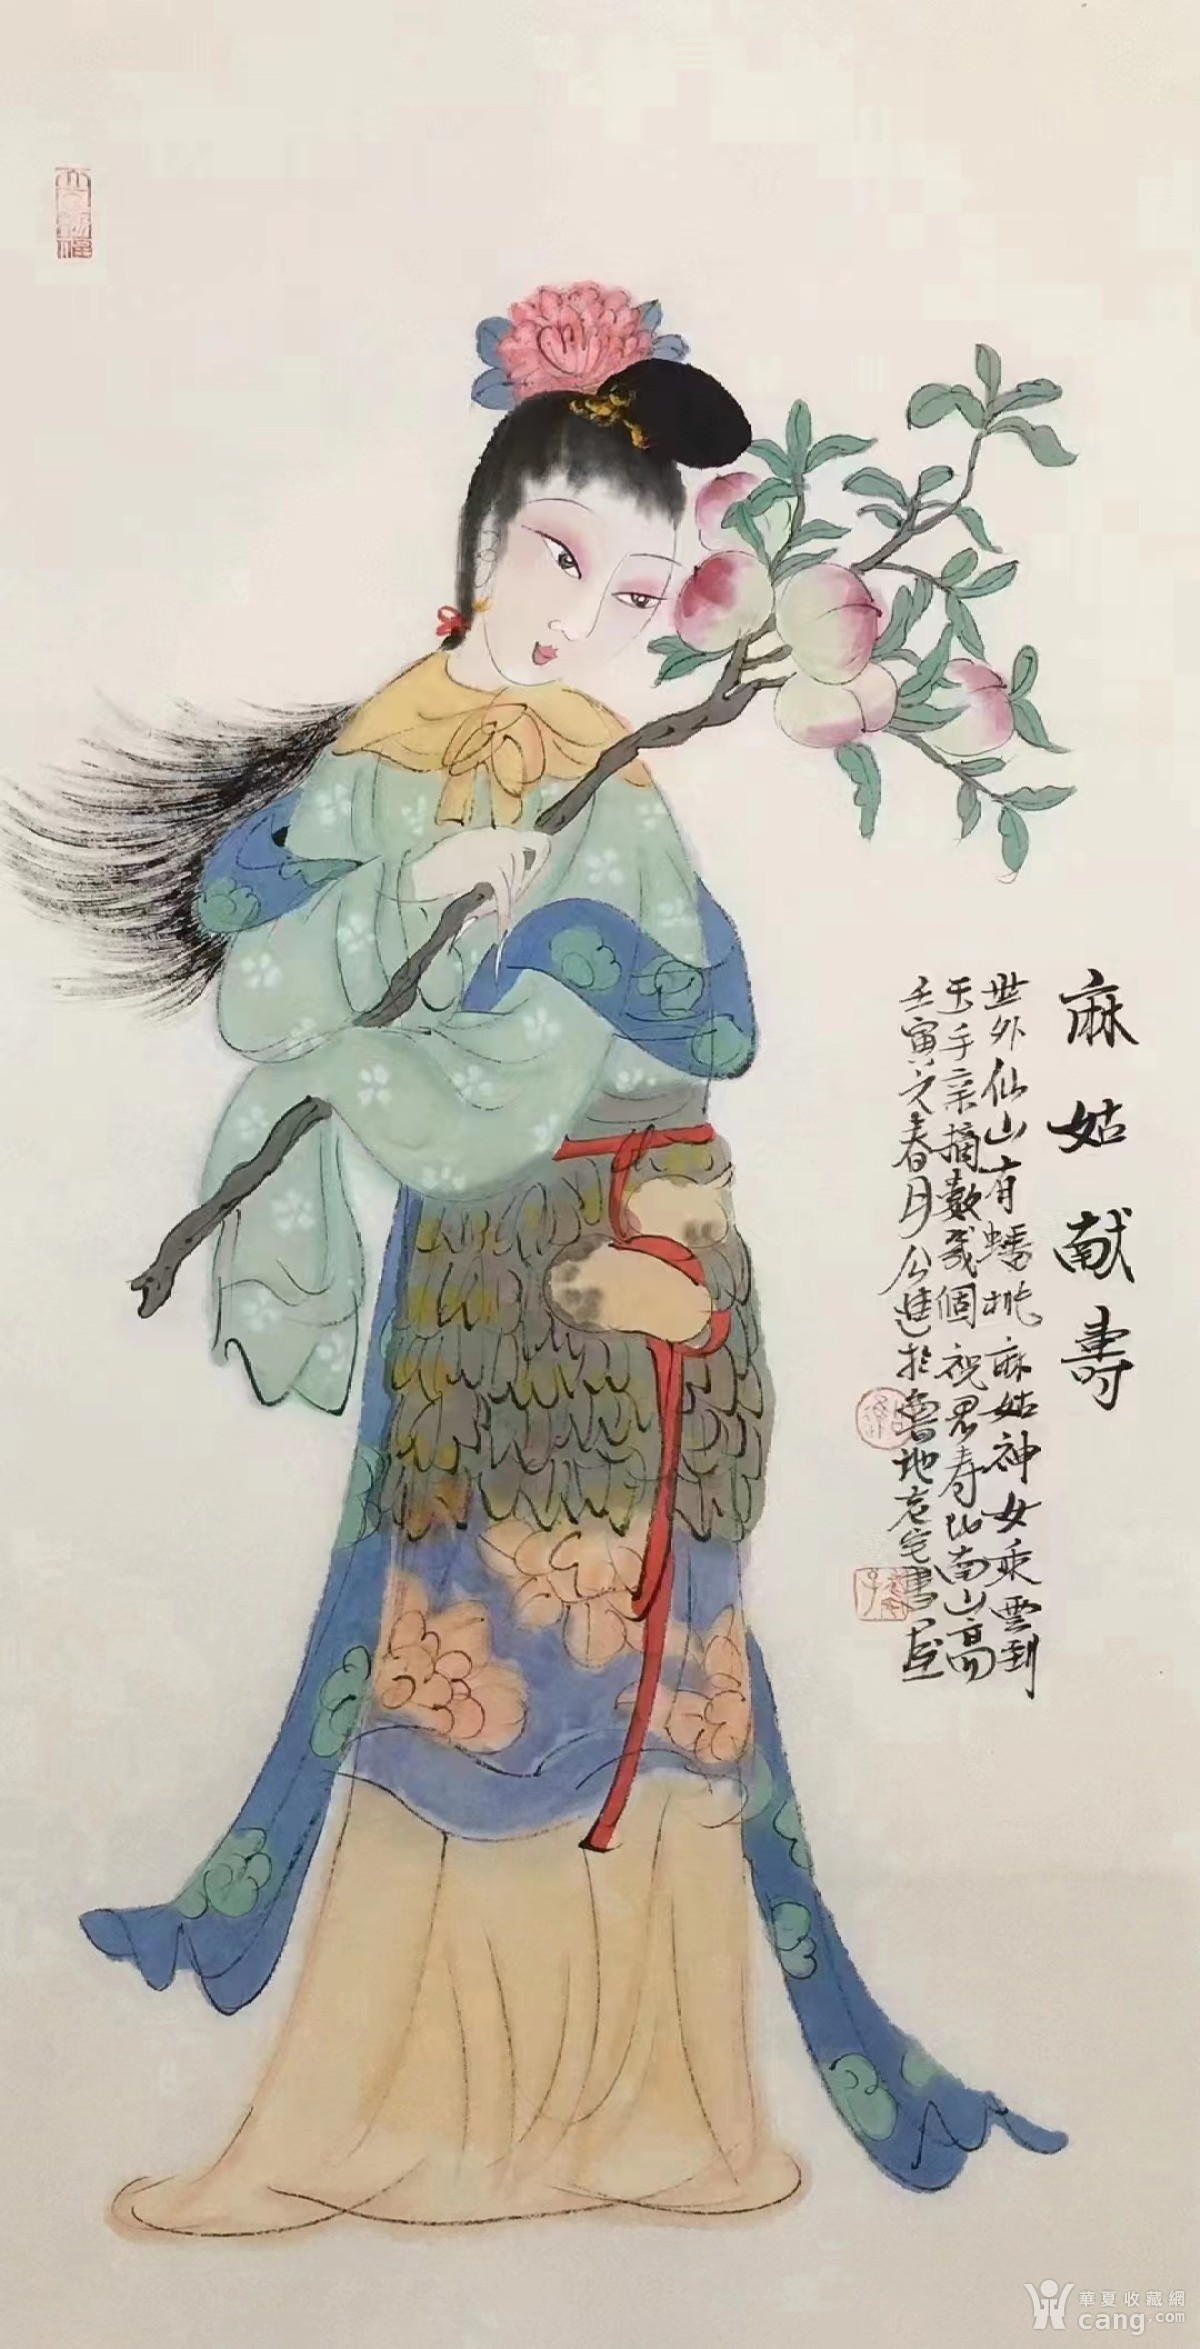 麻姑献壽
世外仙山有蟠桃麻姑神女乘雲到
玉手亲摘數幾個祝君寿比南山高
壬寅之春月公進於魯地老宅書屋
華夏收藏網
cang.com